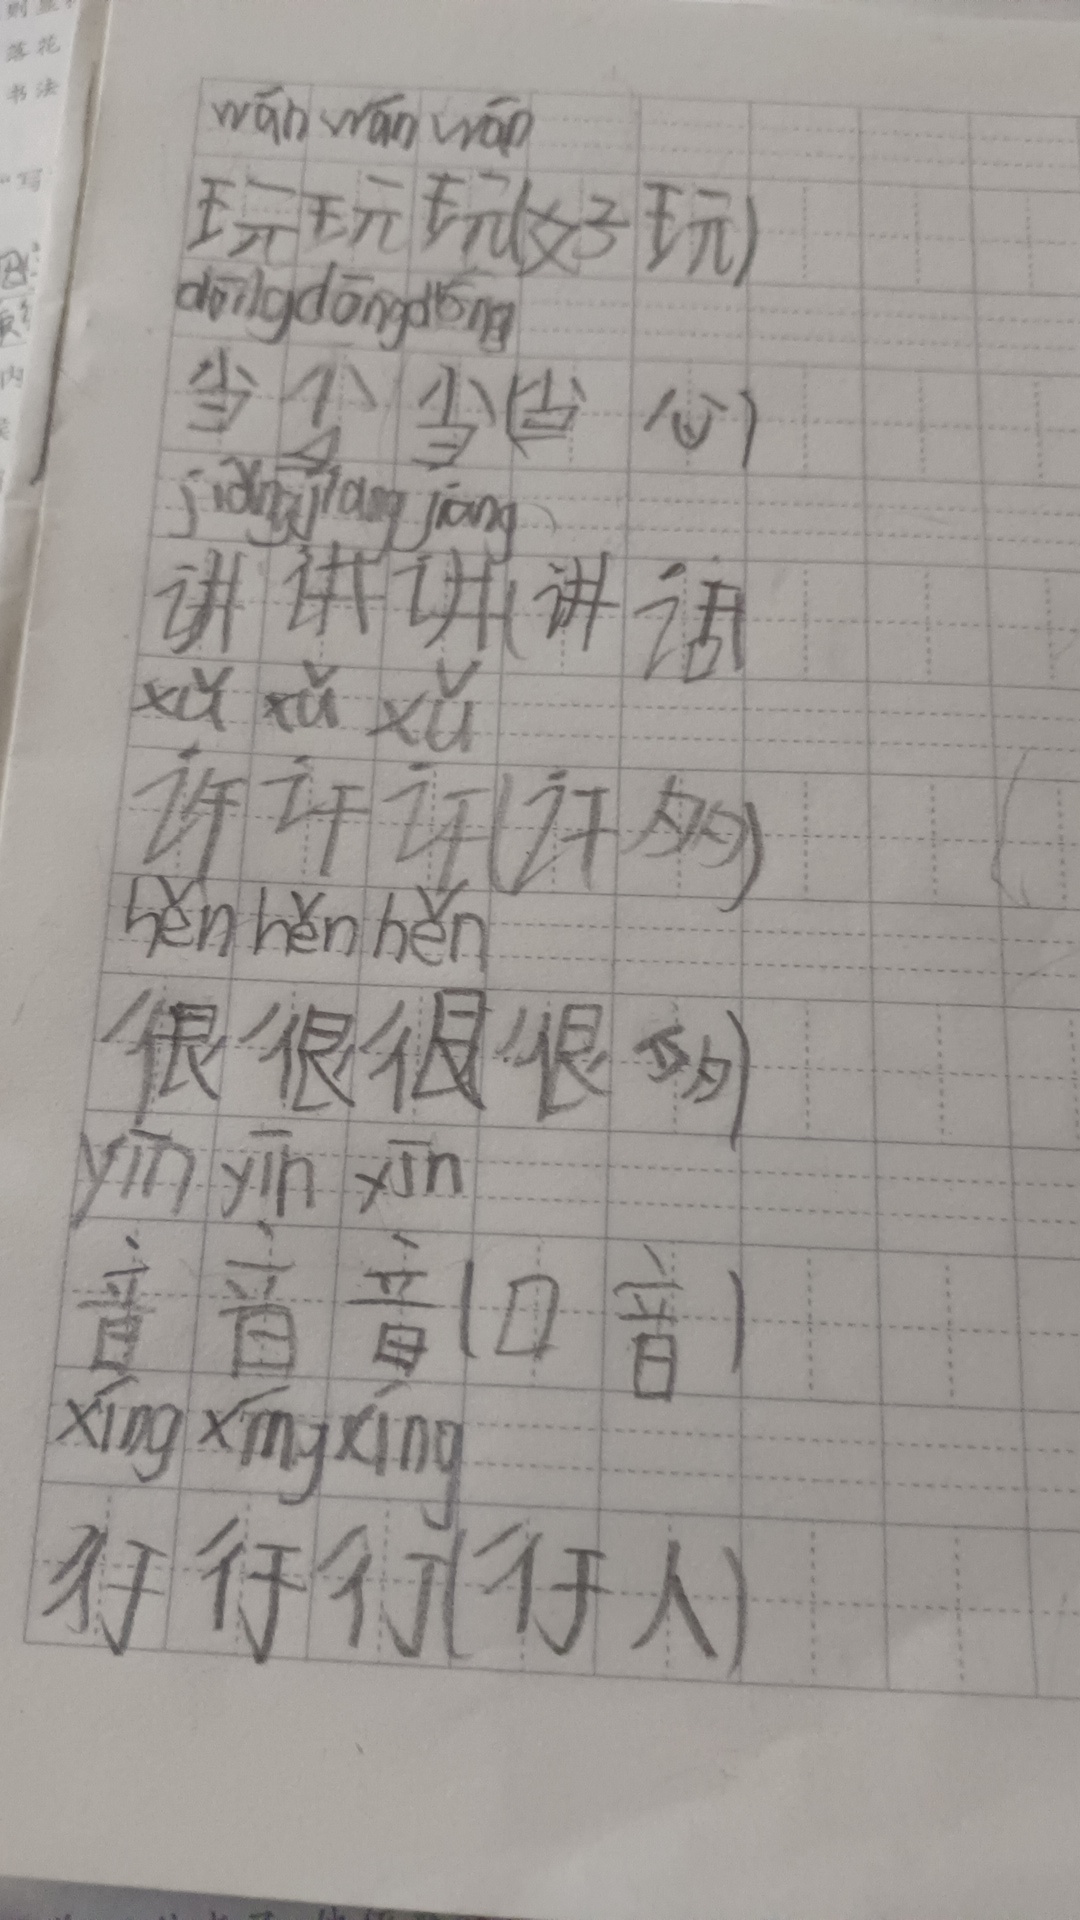 wán wán wán
玩玩玩(好玩)
dāng dāng dāng
当当当(当心)
jiǎng jiǎng jiǎng
讲讲讲(讲话
xǔ xǔ xǔ
许许许(许多)
hěn hěn hěn
很很很 很多)
yīn yīn yīn
音音音(口音)
xíng xíng xíng
行行行(行人)
落花
书法
写
内